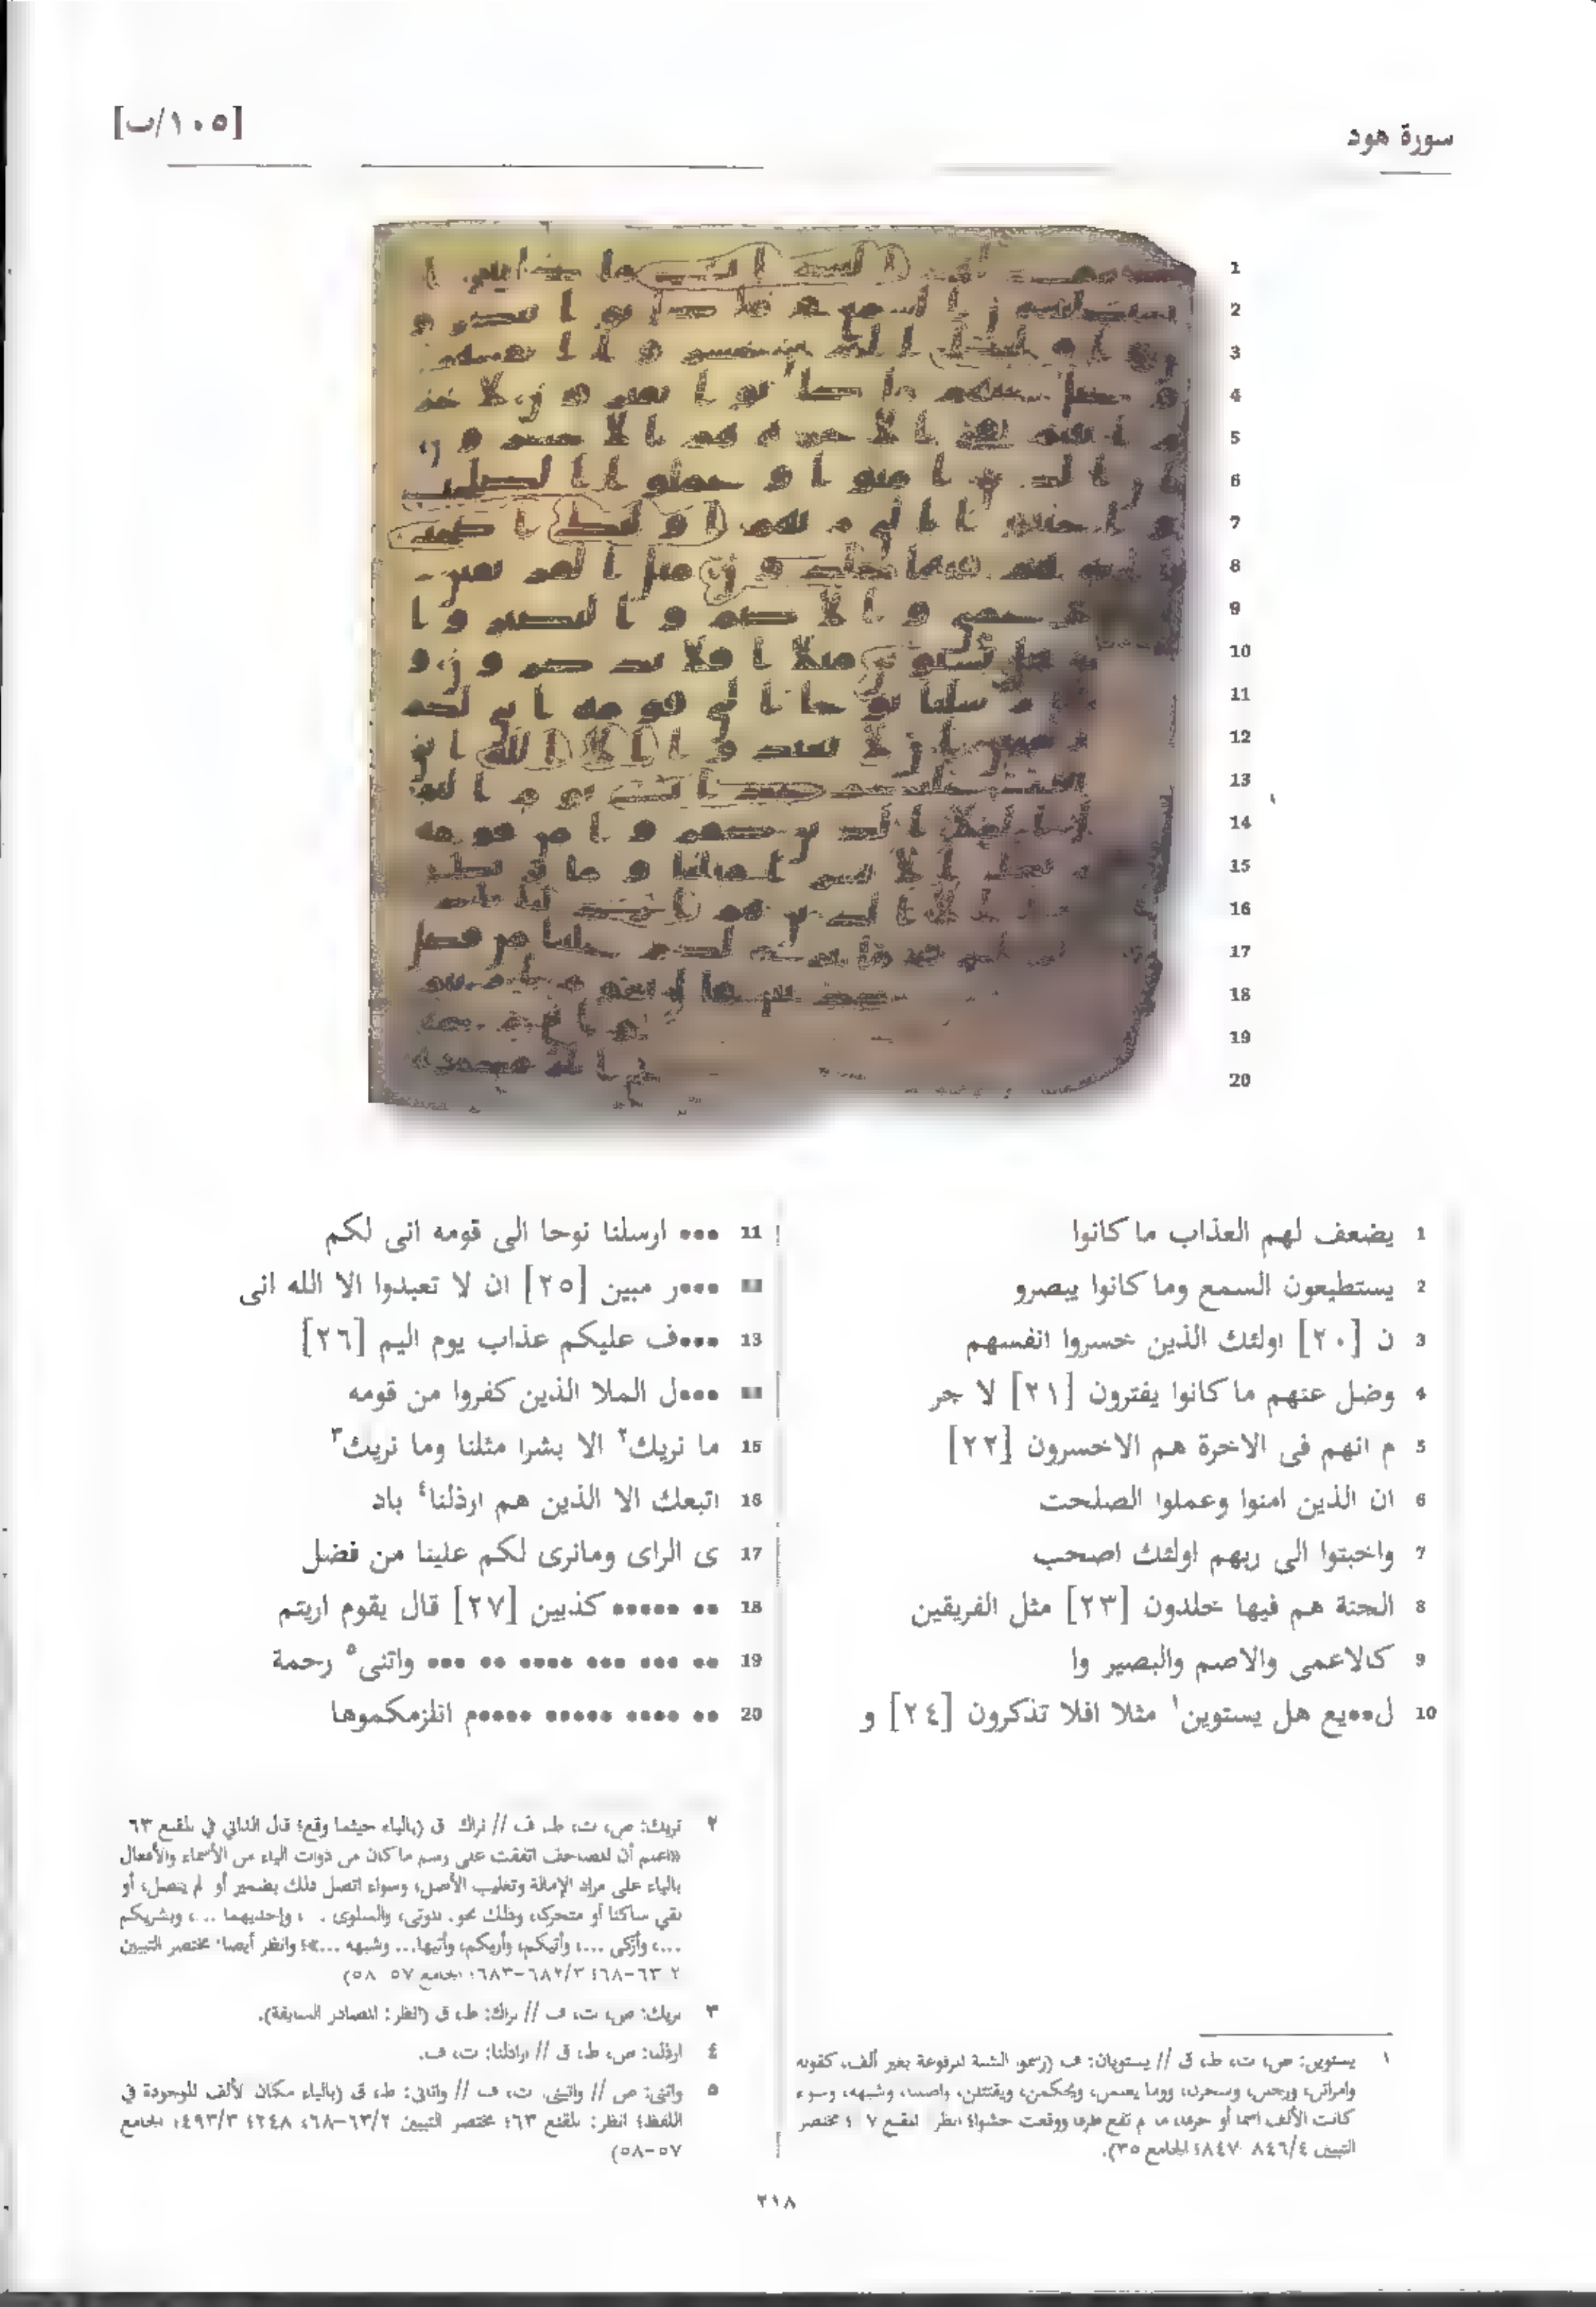 سورة هود
[١٠٥/ب]
1 يضعف لهم العذاب ما كانوا
2 يستطيعون السمع وما كانوا يبصرو
3 ن [٢٠] اولئك الذين خسروا انفسهم
4 وضل عنهم ما كانوا يفترون [٢١] لا جر
5 م انهم فى الاخرة هم الاخسرون [٢٢]
6 ان الذين امنوا وعملوا الصلحت
7 واخبتوا الى ربهم اولئك اصحب
8 الجنة هم فيها خلدون [٢٣] مثل الفريقين
9 كالاعمى والاصم والبصير وا
10 ل●●يع هل يستوين١ مثلا افلا تذكرون [٢٤] و
11 ●●● ارسلنا نوحا الى قومه انى لكم
●●●ر مبين [٢٥] ان لا تعبدوا الا الله انى
13 ●●●ف عليكم عذاب يوم اليم [٢٦]
●●●ل الملا الذين كفروا من قومه
15 ما نريك٢ الا بشرا مثلنا وما نريك٣
16 اتبعك الا الذين هم ارذلنا٤ باد
17 ى الراى ومانرى لكم علينا من فضل
18 ●● ●●●●● كذبين [٢٧] قال يقوم اريتم
19 ●● ●●● ●●● ●●●● ●● ●●● واتنى٥ رحمة
20 ●● ●●●● ●●●●● ●●●●●م انلزمكموها
١ يستوين: ص، ت، ط، ق // يستويان: ف (رسمو التثنية المرفوعة بغير ألف، كقوله
وامراتن، ورجلن، وسحرن، وما يعلمن، ويحكمن، ويقتتلن، واضلنا، وشبهه، وسواء
كانت الألف اسما أو حرفا، ما لم تقع طرفا ووقعت حشوا؛ انظر المقنع ١٧؛ مختصر
التبيين ٨٤٦/٤-٨٤٧؛ الجامع ٣٥).
٢ نريك: ص، ت، ط، ف // نراك ق (بالياء حيثما وقع؛ قال الداني في المقنع ٦٣
«اعلم أن المصاحف اتفقت على رسم ما كان من ذوات الياء من الأسماء والأفعال
بالياء على مراد الإمالة وتغليب الأصل، وسواء اتصل ذلك بضمير أو لم يتصل، أو
لقي ساكنا أو متحركا، وذلك نحو. الموتى، والسلوى ...، وإحديهما ...، وبشريكم
...، وأزكى ...، وأتيكم، وأريكم، وأتيها... وشبهه ...»؛ وانظر أيضا: مختصر التبيين
٢ ٦٣-٦٨؛ ٦٨٢/٣-٦٨٣؛ الجامع ٥٧-٥٨)
٣ نريك: ص، ت، ف // نراك: ط، ق (انظر: المصادر السابقة).
٤ ارذلنا: ص، ط، ق // اراذلنا: ت، ف.
٥ واتنى: ص // واتينى. ت، ف // واتانى: ط، ق (بالياء مكان الألف الموجودة في
اللفظ؛ انظر: المقنع ٦٣؛ مختصر التبيين ٦٣/٢-٦٨، ٢٤٨؛ ٤٩٣/٣؛ الجامع
٥٧-٥٨)
٢١٨